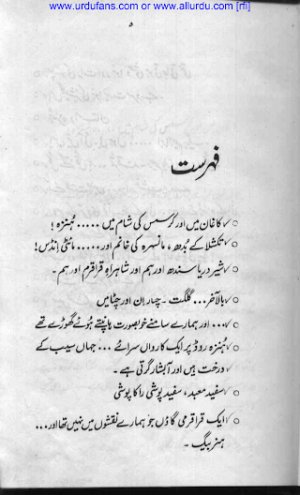 www.urdufans.com or www.allurdu.com [rfi]
۵
فہرست
کاغان میں اور کرسمس کی شام میں ..... ہُنزہ !
ٹیکسلا کے بُدھ ، مانسہرہ کی خانم اور ..... مائیٹی انڈس!
شیر دریا سندھ اور ہم اور شاہراہِ قراقرم اور ہم ۔
بالآخر ... گلگت ۔ چنار باغ اور چٹانیں
... اور ہمارے سامنے خوبصورت ہانپتے ہوئے گھوڑے تھے
ہُنزہ روڈ پر ایک کارواں سرائے ... جہاں سیب کے
درخت ہیں اور آبشار گرتی ہے ۔
سفید معبد، سفید پوشی راکا پوشی
ایک قراقرمی گاؤں جو ہمارے نقشوں میں نہیں تھا اور ...
ہنر بیگ ۔